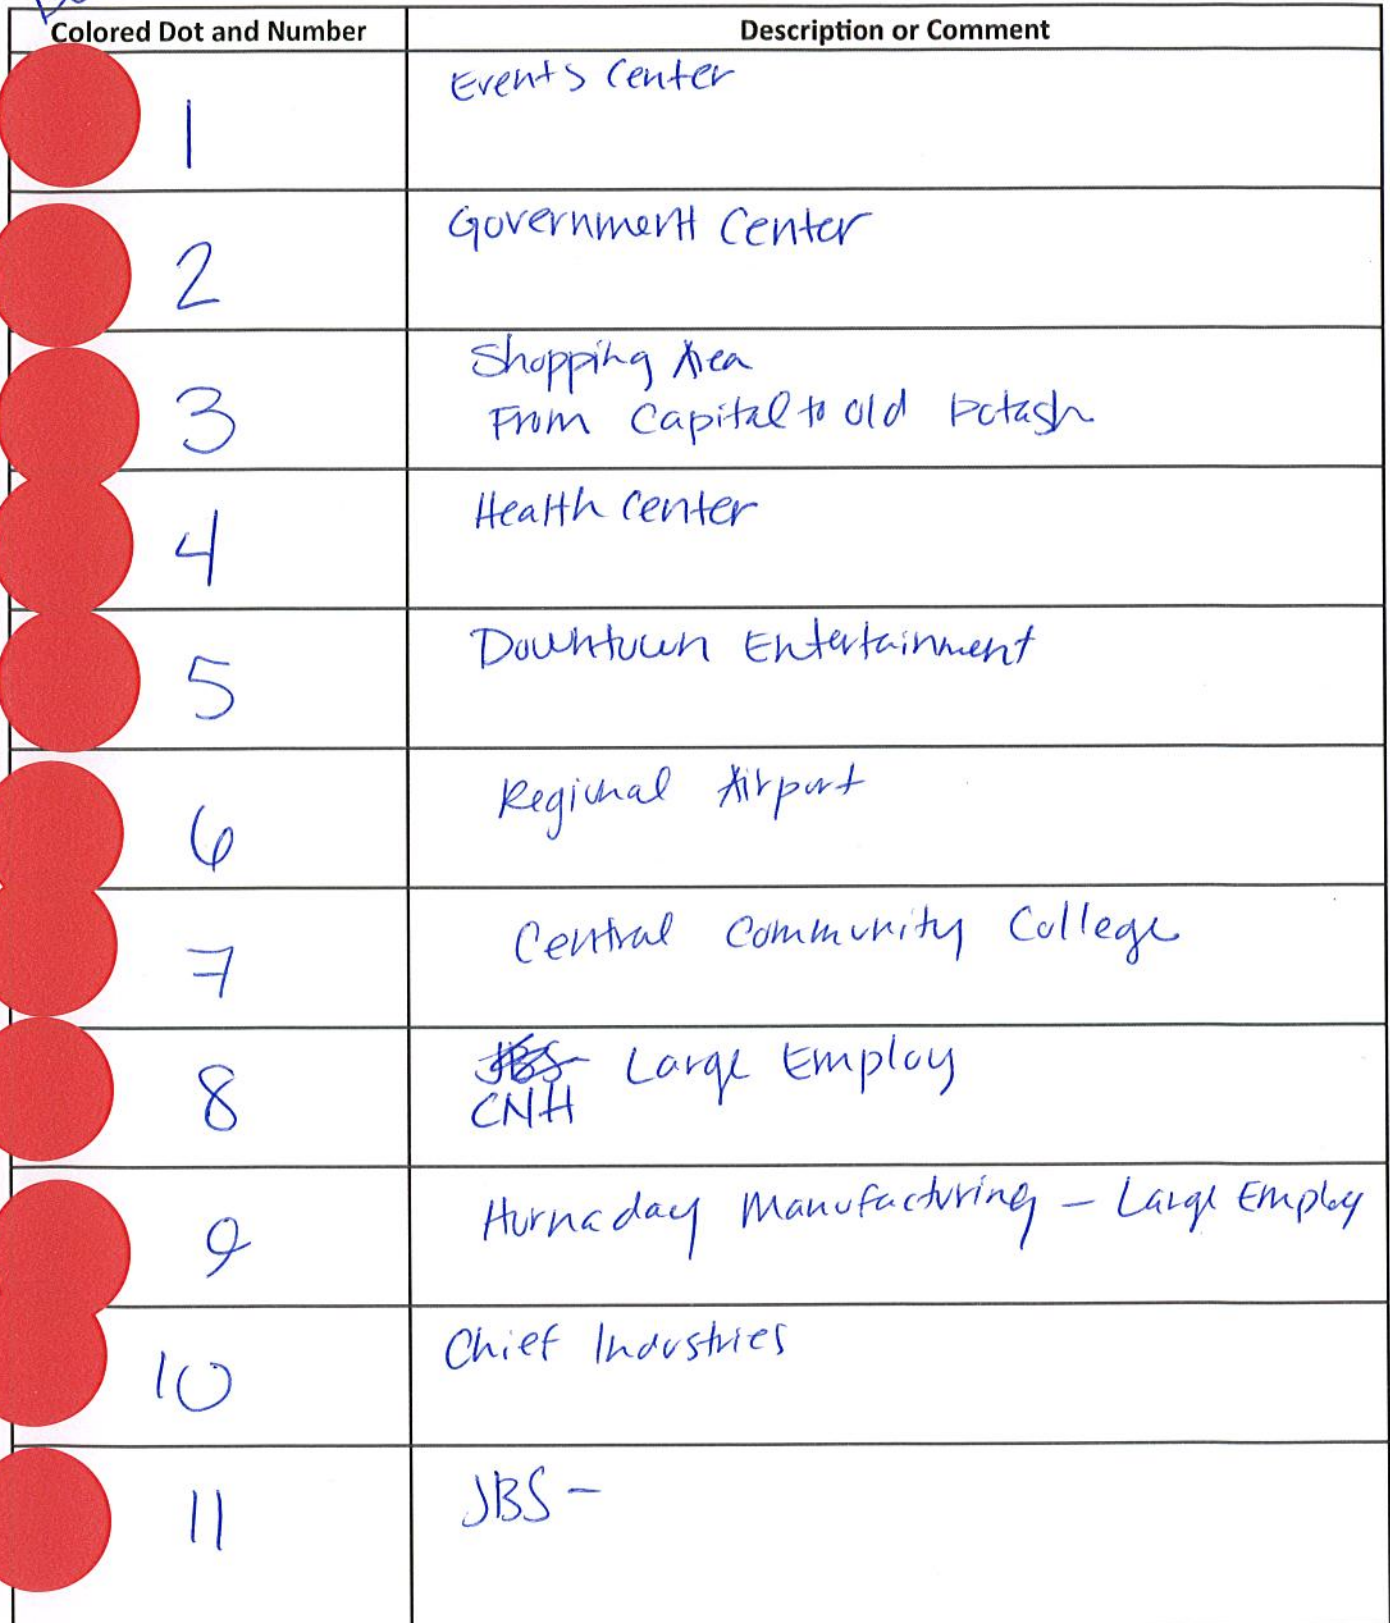 Colored Dot and Number Description or Comment
1 Events Center
2 Government Center
3 Shopping Area
From Capital to Old Potash
4 Health Center
5 Downtown Entertainment
6 Regional Airport
7 Central Community College
8 JBS Large Employ
CNH
9 Hornaday Manufacturing – Large Employ
10 Chief Industries
11 JBS –